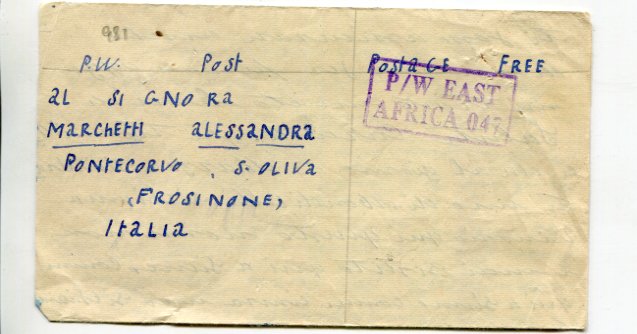 981
P.W. Post Postage FREE
P/W EAST
AFRICA 047
al SIGNORA
MARCHETTI alESSANDRa
PONTECORVO, S. OLIVa
FROSINONE,
ITalIa